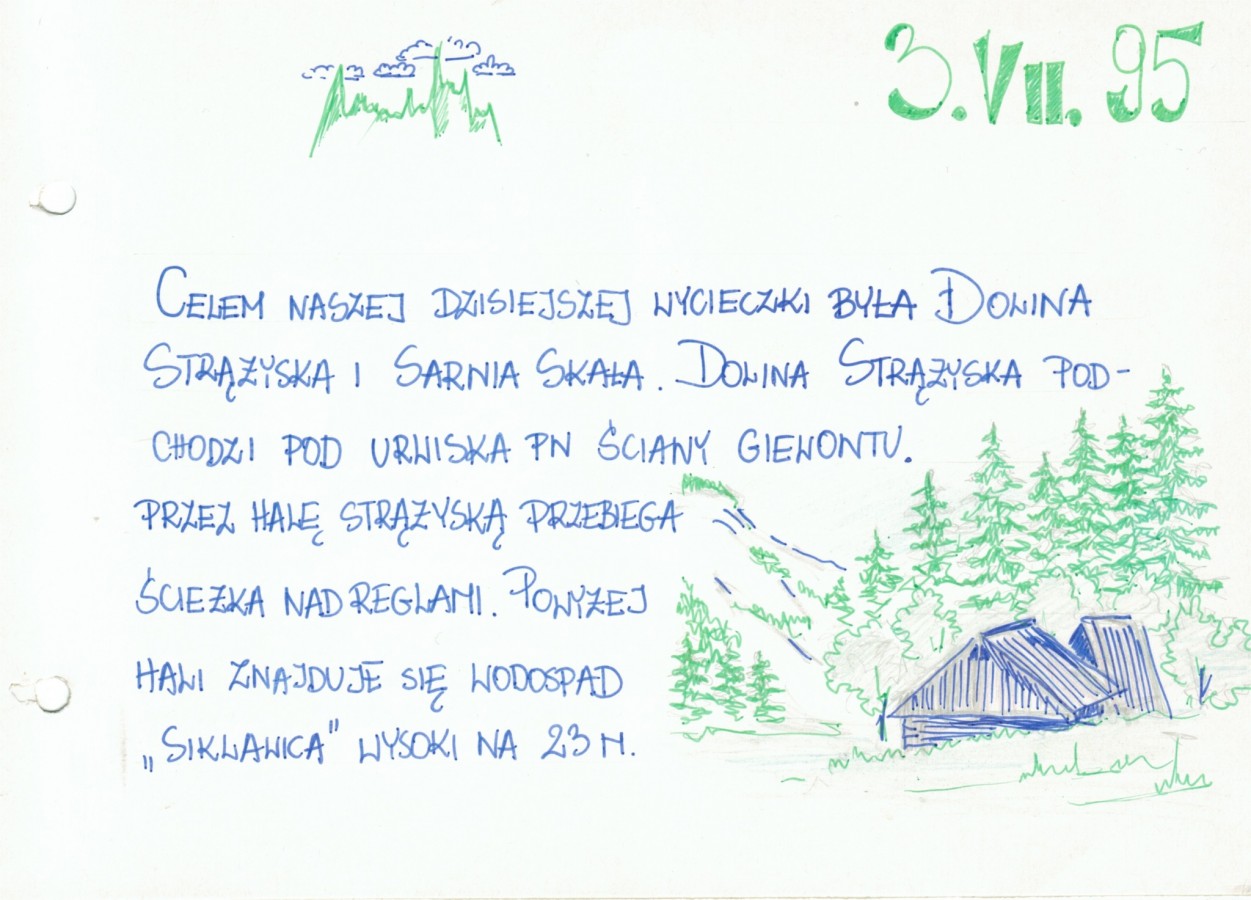 3.VII.95
CELEM NASZEJ DZISIEJSZEJ WYCIECZKI BYŁA DOLINA
STRĄŻYSKA I SARNIA SKAŁA. DOLINA STRĄŻYSKA POD-
CHODZI POD URWISKA PN ŚCIANY GIEWONTU.
PRZEZ HALĘ STRĄŻYSKĄ PRZEBIEGA
ŚCIEŻKA NAD REGLAMI. POWYŻEJ
HALI ZNAJDUJE SIĘ WODOSPAD
„SIKLAWICA" WYSOKI NA 23 M.